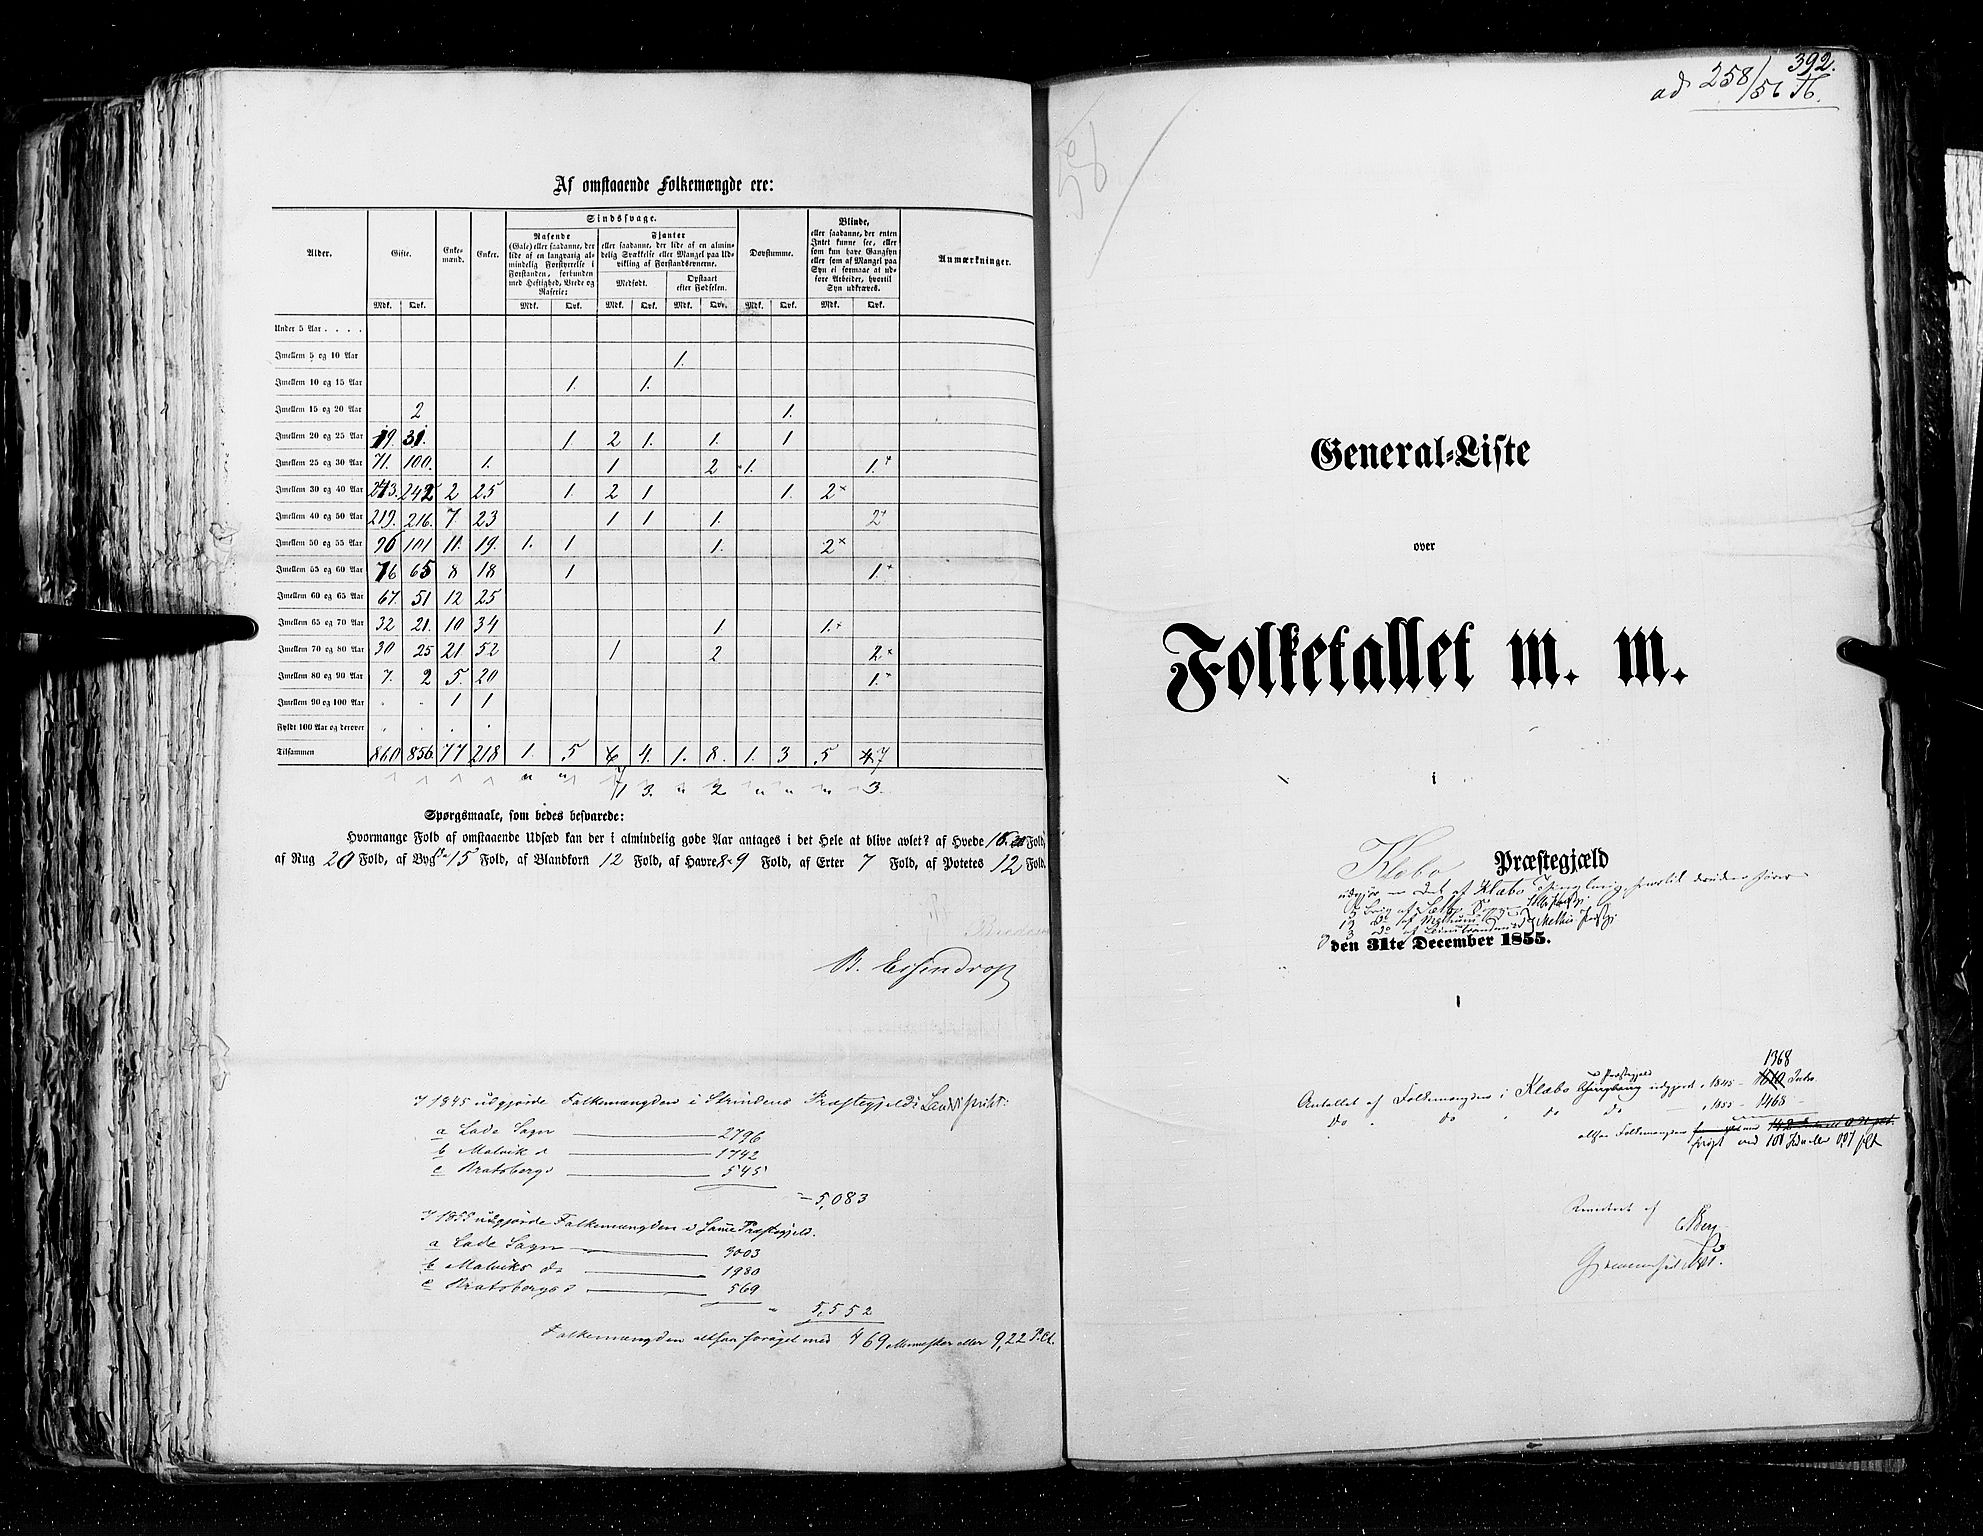 Af omstaaende Folkemængde ere:
Alder. | Gifte. | Enkemænd. | Enker. | Sindssvage. | Døvstumme. | Blinde, eller saadanne, der enten Intet kunne see, eller som kun have Gangsyn eller som af Mangel paa Syn ei formaae at udføre Arbeider, hvortil Syn udkræves. | Anmærkninger.
Rasende (Gale) eller saadanne, der lide af en langvarig almindelig Forstyrrelse i Forstanden, forbunden med Heftighed, Vrede og Raserie: | Fjanter eller saadanne, der lide af en almindelig Svækkelse eller Mangel paa Udvikling af Forstandsevnerne.
Medfødt. | Opstaaet efter Fødselen.
Mdk. | Qvk. | Mdk. | Qvk. | Mdk. | Qvk. | Mdk. | Qvk. | Mdk. | Qvk. | Mdk. | Qvk.
Under 5 Aar . . . .
Imellem 5 og 10 Aar | 1.
Imellem 10 og 15 Aar | 1. | 1.
Imellem 15 og 20 Aar | 2 | 1.
Imellem 20 og 25 Aar | 19. | 31. | 1. | 2 | 1. | 1. | 1
Imellem 25 og 30 Aar | 71. | 100. | 1. | 1 | 2 | 1. | 1.+
Imellem 30 og 40 Aar | 243. | 242 | 2 | 25 | 1. | 2 | 1 | 1. | 2+
Imellem 40 og 50 Aar | 219. | 216. | 7. | 23 | 1 | 1 | 1. | 2+
Imellem 50 og 55 Aar | 96 | 101 | 11. | 19. | 1. | 1 | 1. | 2+
Imellem 55 og 60 Aar | 76 | 65 | 8 | 18 | 1 | 1.+
Imellem 60 og 65 Aar | 67. | 51 | 12 | 25
Imellem 65 og 70 Aar | 32 | 21. | 10 | 34 | 1 | 1.+
Imellem 70 og 80 Aar | 30 | 25 | 21 | 52 | 1 | 2 | 2+
Imellem 80 og 90 Aar | 7. | 2 | 5. | 20 | 1.+
Imellem 90 og 100 Aar | . | . | 1 | 1
Fyldt 100 Aar og derover
Tilsammen | 860 | 856 | 77 | 218 | 1. | 5 | 6 | 4. | 1. | 8. | 1. | 3 | 5 | 7
3. 2 3.
Spørgsmaale, som bedes besvarede:
Hvormange Fold af omstaaende Udsæd kan der i almindelig gode Aar antages i det Hele at blive avlet? af Hvede Fold,
af Rug 20 Fold, af Byg 15 Fold, af Blandkorn 12 Fold, af Havre 8-9 Fold, af Erter 7 Fold, af Potetes 12 Fold.
B. Essendrop
I 1845 udgjorde Folkemængden i Strindens Præstegjelds Landdistrikt:
a Lade Sogn 2796
b Malvik d 1742
c Bratsbergs 545
= 5,083
I 1855 udgjorde Folkemængden i samme Præstegjeld.
a Lade Sogn 3003
b Malviks do 1980
c Bratsbergs d 569
5,552
Folkemængden altsaa forøget med 469 Mennesker eller 9,22 P.Ct.
392.
ad 258/56 H.
58
General-Liste
over
Folketallet m. m.
i
Klæbo Præstegjæld
udgjør en Del af Klæbo Thinglaug,
den 31te December 1855.
1368
Præstegjeld
Antallet af Folkemængden i Klæbo udgjord i 1845 - Indv.
Do do do do i 1855 - 1468 -
altsaa Folkemængden
forøgt med 100
Revideret af
Berg